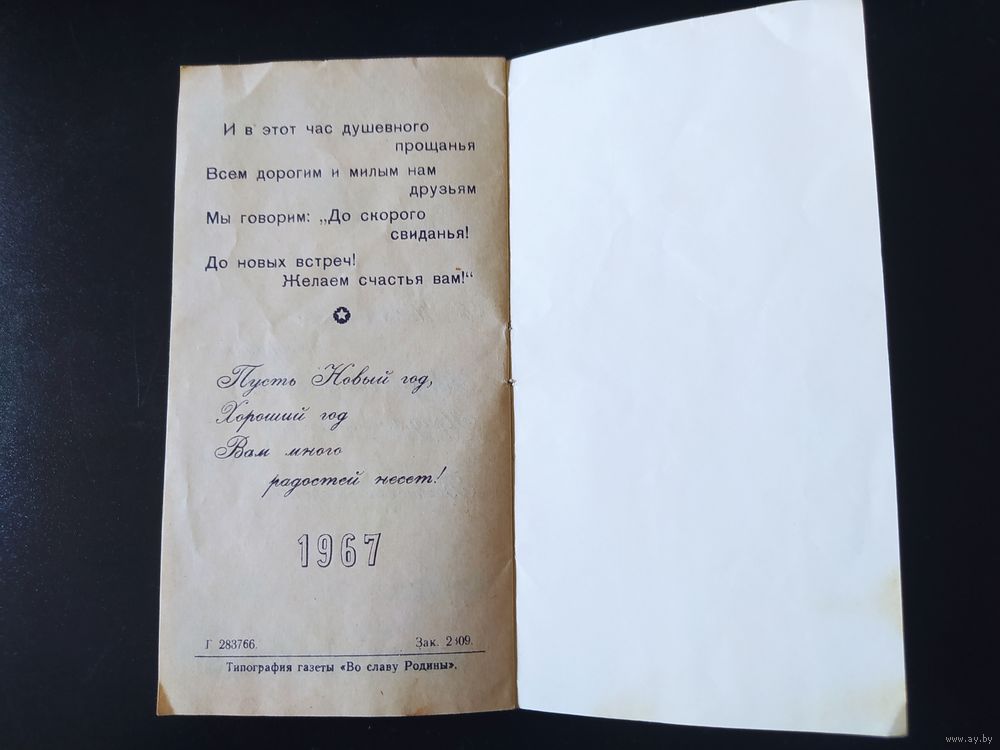 И в этот час душевного
прощанья
Всем дорогим и милым нам
друзьям
Мы говорим: „До скорого
свиданья!
До новых встреч!
Желаем счастья вам!“
Пусть Новый год,
Хороший год
Вам много
радостей несет!
1967
Г 283766. Зак. 2309.
Типография газеты «Во славу Родины».
www.ay.by